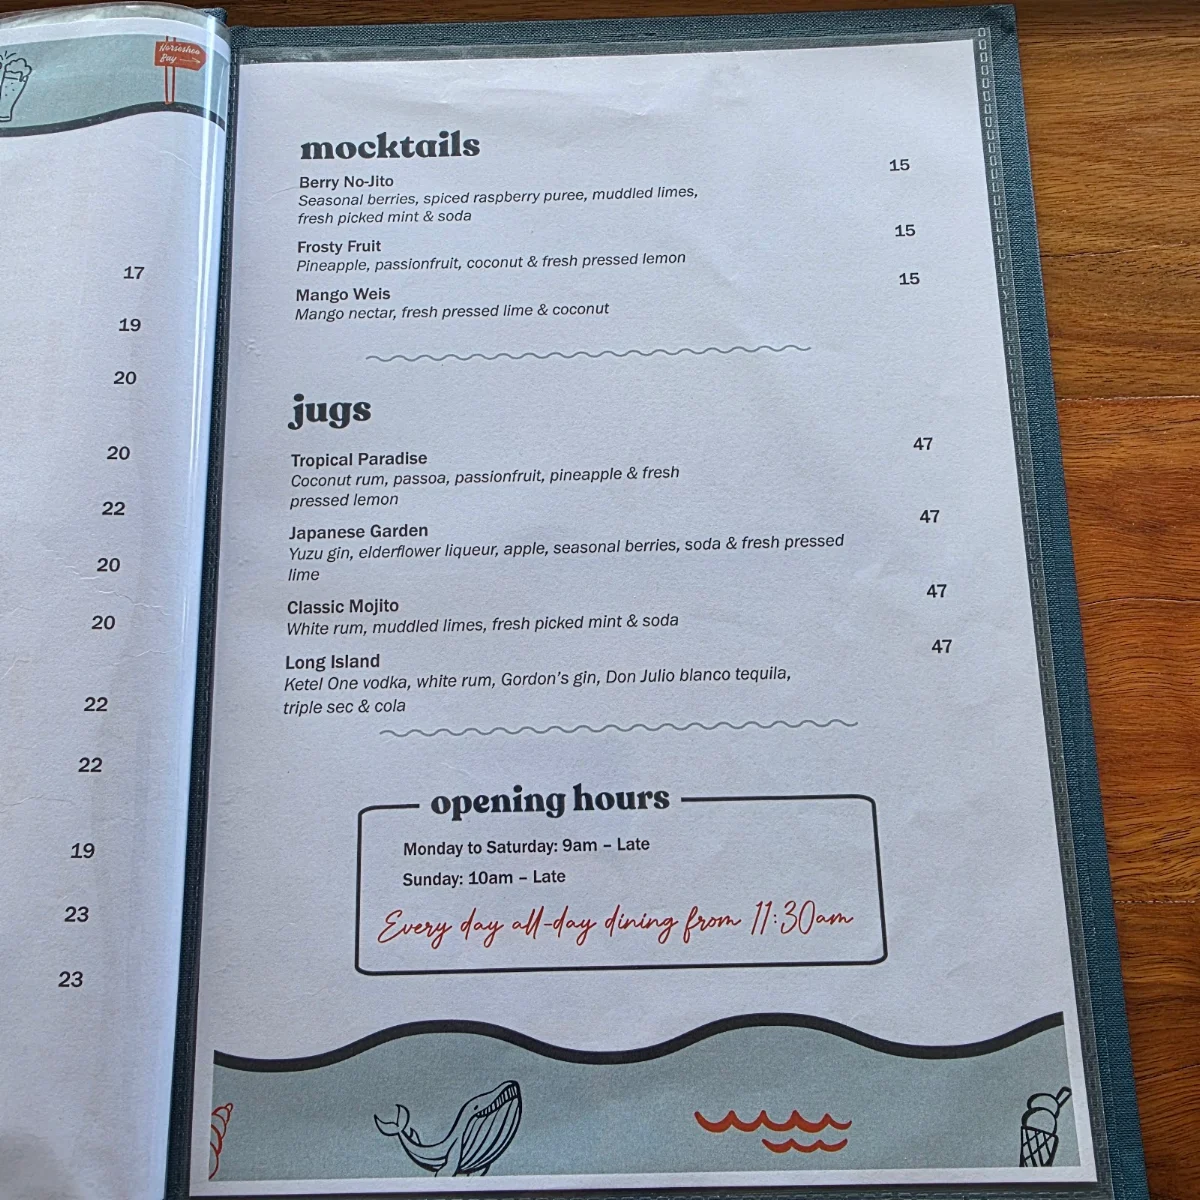 Horseshoe
Bay
17
19
20
20
22
20
20
22
22
19
23
23
mocktails
Berry No-Jito 15
Seasonal berries, spiced raspberry puree, muddled limes,
fresh picked mint & soda
Frosty Fruit 15
Pineapple, passionfruit, coconut & fresh pressed lemon
Mango Weis 15
Mango nectar, fresh pressed lime & coconut
jugs
Tropical Paradise 47
Coconut rum, passoa, passionfruit, pineapple & fresh
pressed lemon
Japanese Garden 47
Yuzu gin, elderflower liqueur, apple, seasonal berries, soda & fresh pressed
lime
Classic Mojito 47
White rum, muddled limes, fresh picked mint & soda
Long Island 47
Ketel One vodka, white rum, Gordon's gin, Don Julio blanco tequila,
triple sec & cola
opening hours
Monday to Saturday: 9am – Late
Sunday: 10am – Late
Every day all-day dining from 11:30am